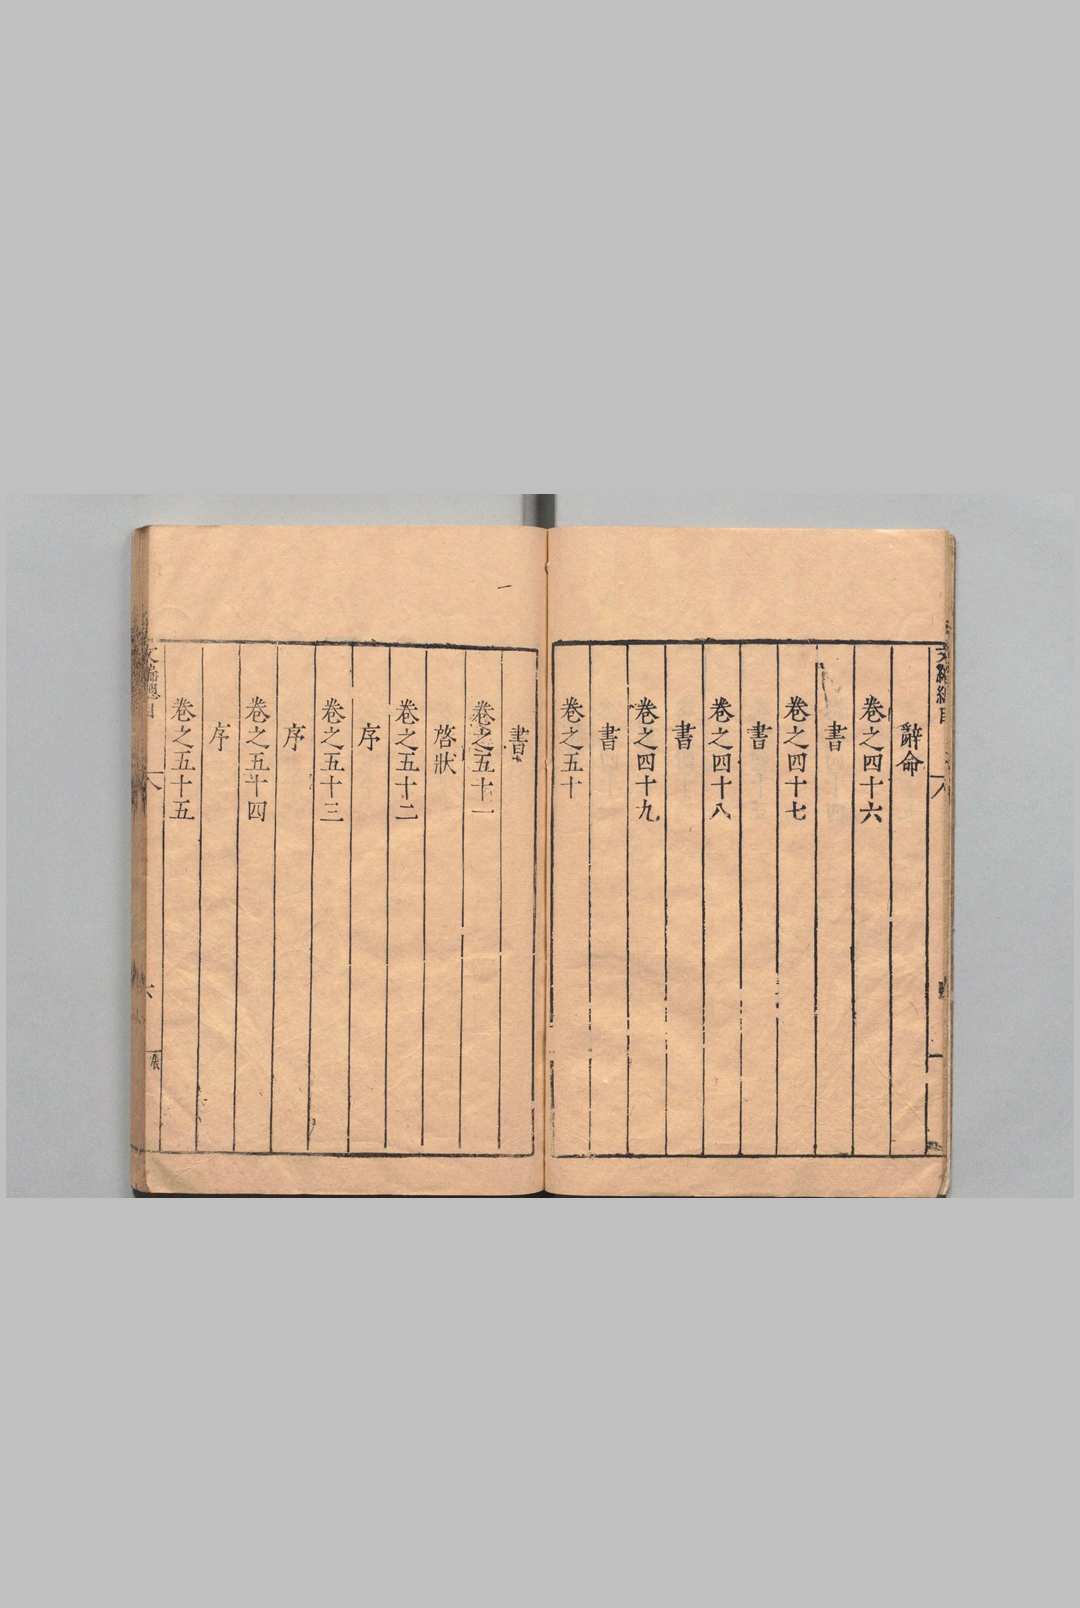 辭命
卷之四十六
書
卷之四十七
書
卷之四十八
書
卷之四十九
書
卷之五十
書
卷之五十一
啓狀
卷之五十二
序
卷之五十三
序
卷之五十四
序
卷之五十五